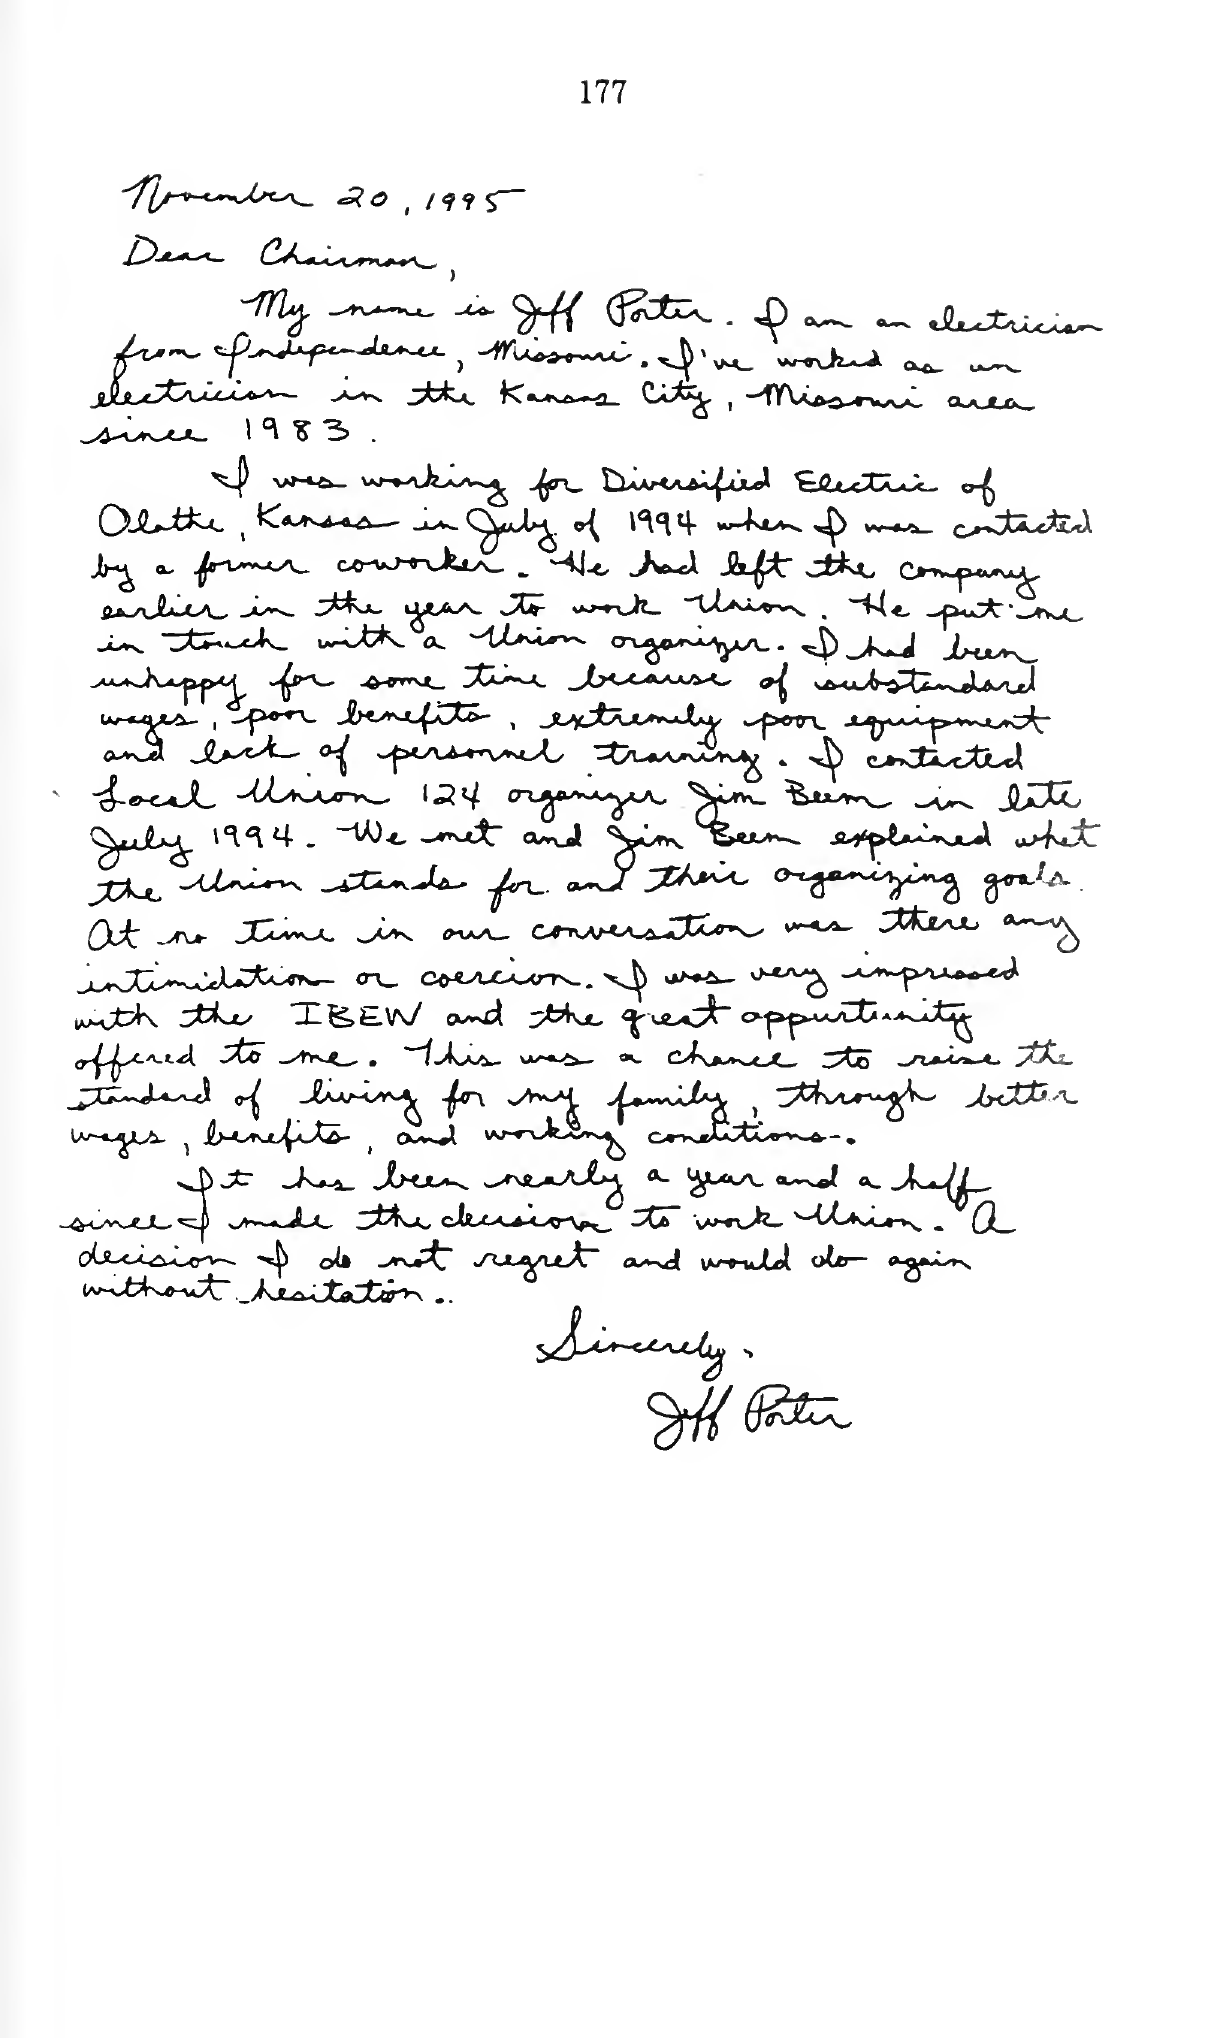 177
November 20, 1995
Dear Chairman,
My name is Jeff Porter. I am an electrician
from Independence, Missouri. I've worked as an
electrician in the Kansas City, Missouri area
since 1983.
I was working for Diversified Electric of
Olathe, Kansas in July of 1994 when I was contacted
by a former coworker. He had left the company
earlier in the year to work Union. He put me
in touch with a Union organizer. I had been
unhappy for some time because of substandard
wages, poor benefits, extremely poor equipment
and lack of personnel training. I contacted
Local Union 124 organizer Jim Beem in late
July 1994. We met and Jim Beem explained what
the Union stands for and their organizing goals.
At no time in our conversation was there any
intimidation or coercion. I was very impressed
with the IBEW and the great oppurtunity
offered to me. This was a chance to raise the
standard of living for my family, through better
wages, benefits, and working conditions.
It has been nearly a year and a half
since I made the decision to work Union. A
decision I do not regret and would do again
without hesitation.
Sincerely,
Jeff Porter